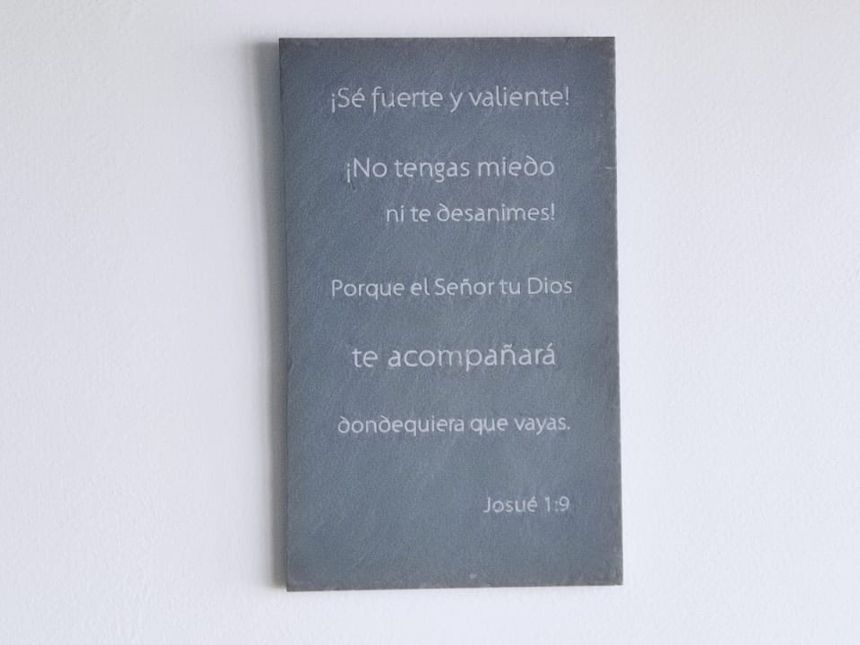 ¡Sé fuerte y valiente!
¡No tengas miedo
ni te desanimes!
Porque el Señor tu Dios
te acompañará
dondequiera que vayas.
Josué 1:9